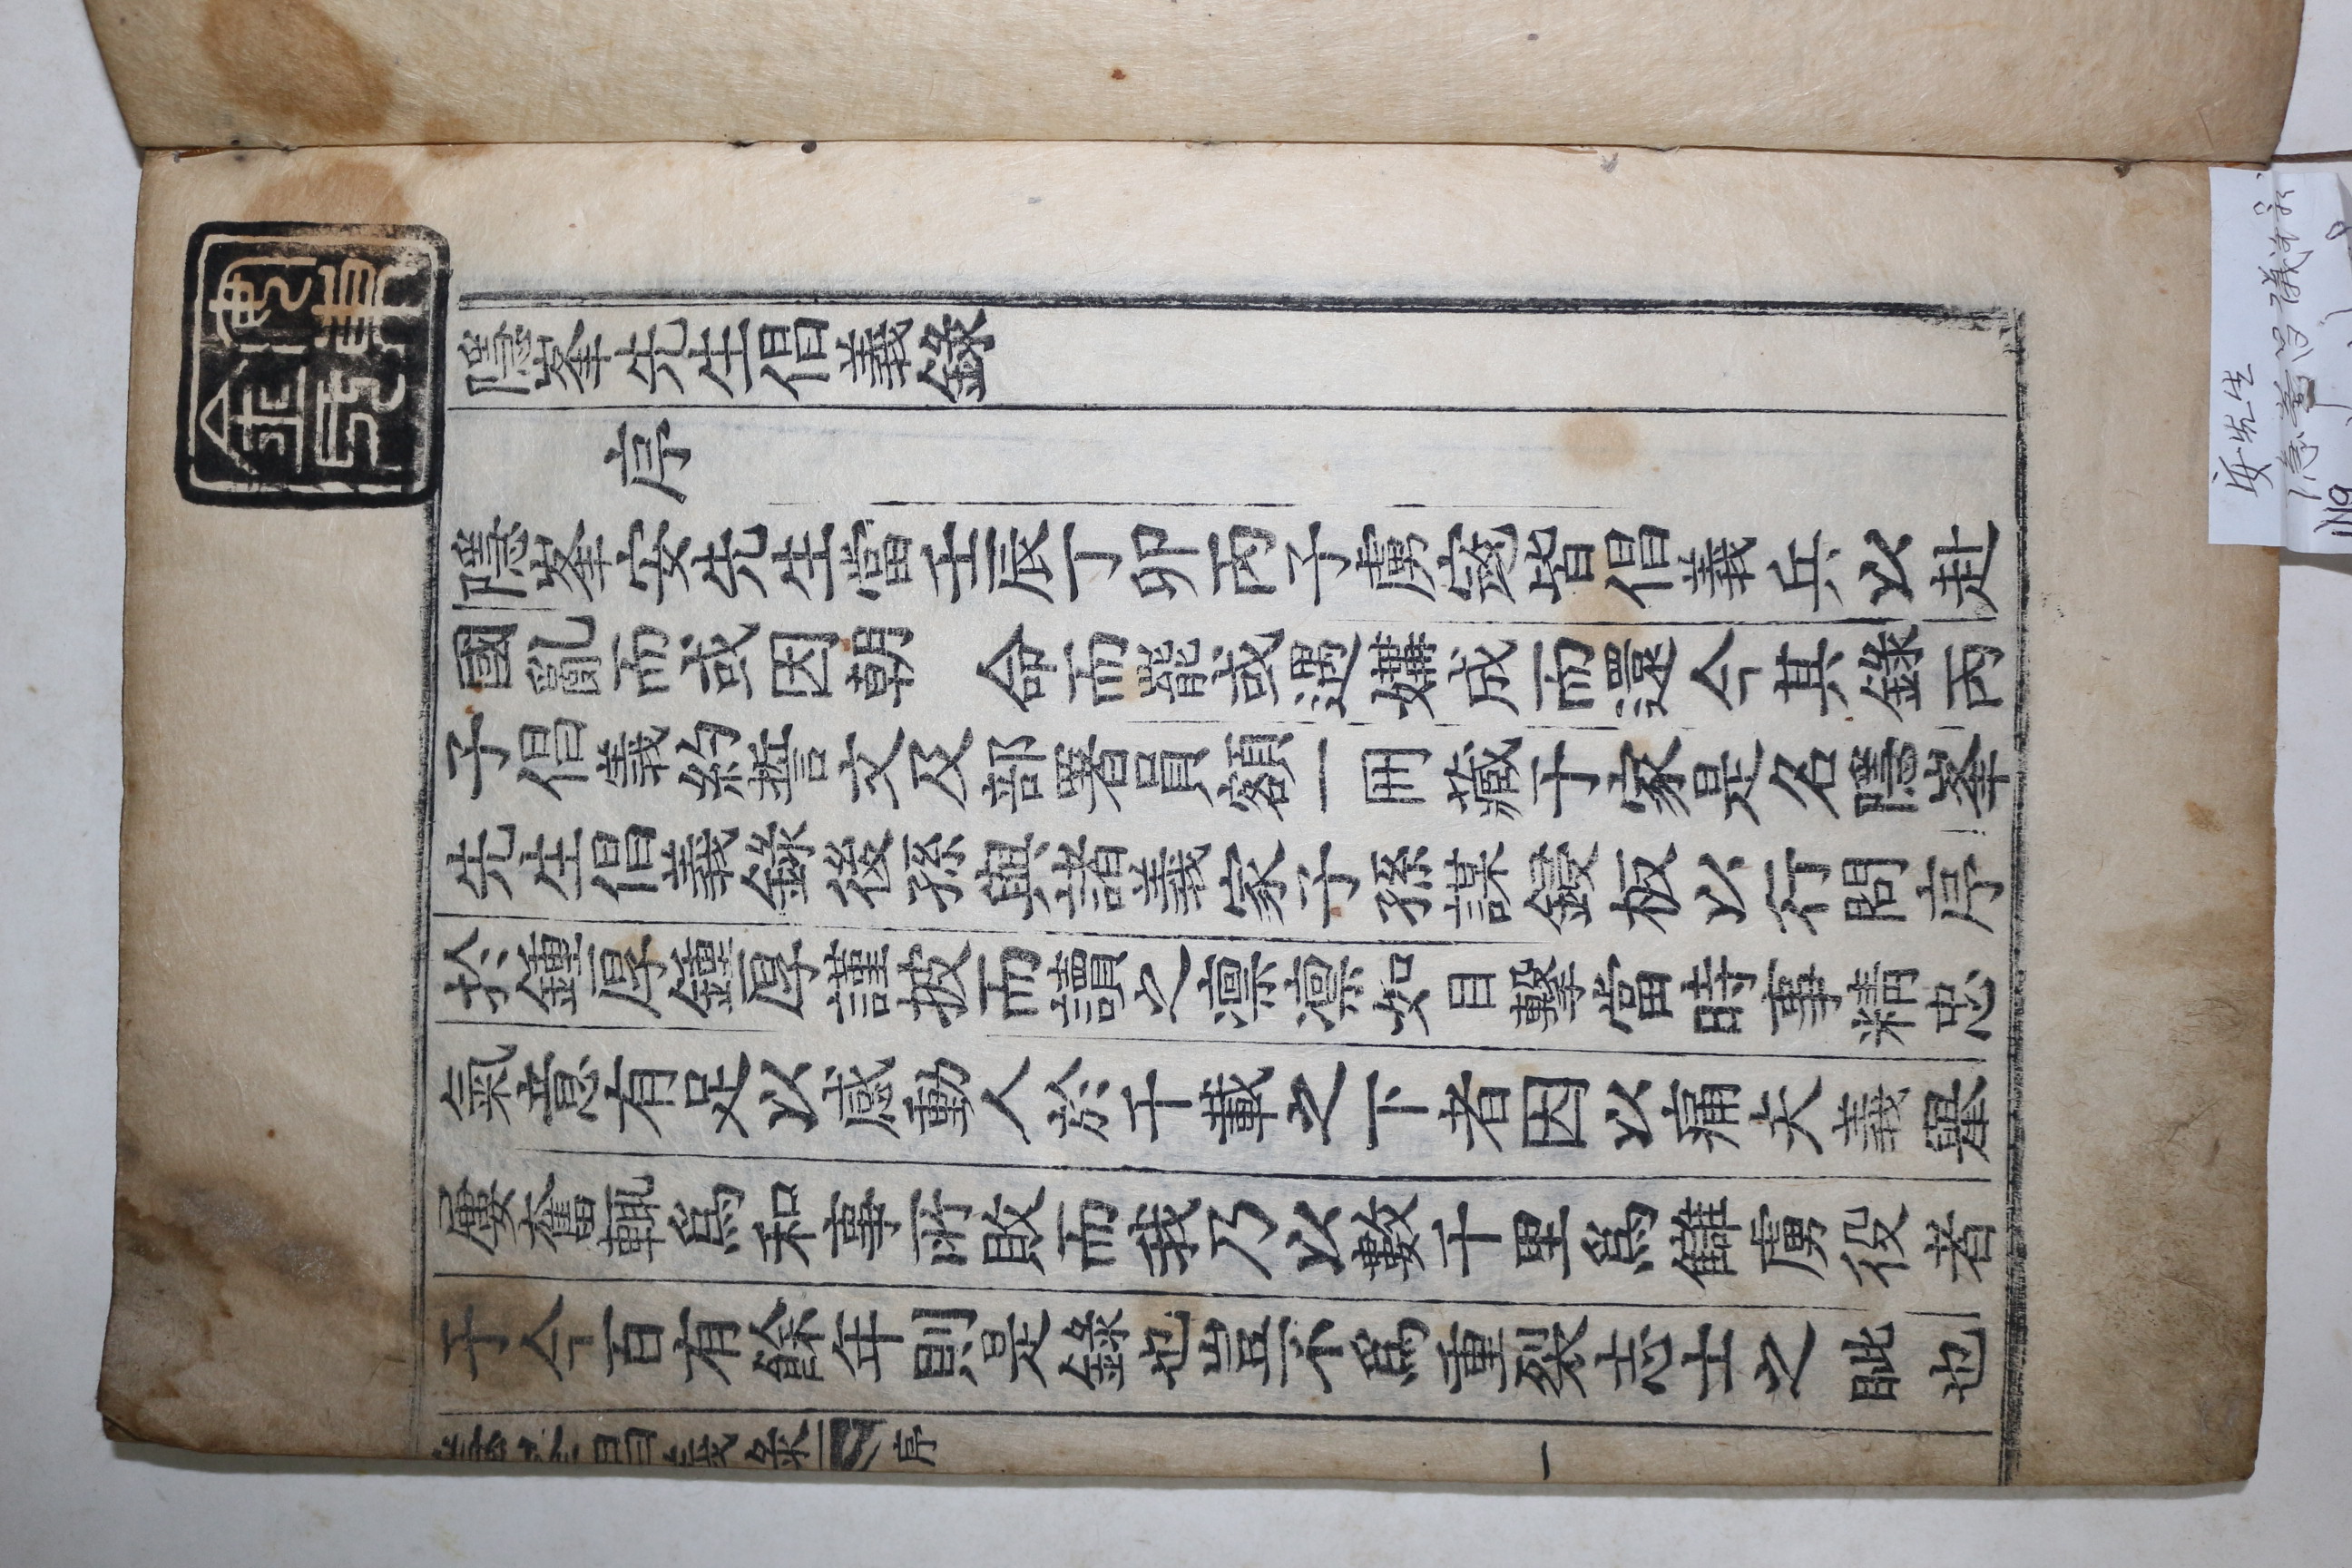 安東
金氏
隱峯先生倡義錄
序
隱峯安先生當壬辰丁卯丙子虜寇皆倡義兵以赴
國亂而或因朝 命而罷或遇媾成而還今其錄丙
子倡義約誓文及部署員額一冊藏于家是名隱峯
先生倡義錄後孫與諸義家子孫謀鋟板以行問序
於鍾厚鍾厚謹披而讀之凛凛如目擊當時事精忠
氣意有足以感動人於千載之下者因以痛夫義擧
屢奮輒爲和事所敗而我乃以數千里爲讎虜役者
于今百有餘年則是錄也豈不爲重裂志士之眦也
倡義錄 序 一
安先生